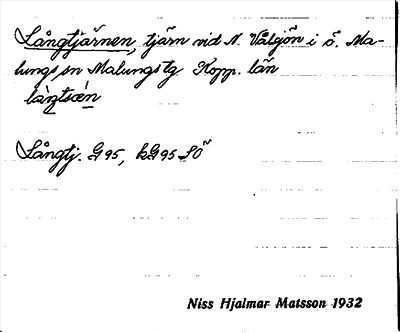 Långtjärnen, tjärn vid N. Vålsjön i ö. Ma-
lungs sn Malungs tg. Kopp. län
Långtj. G95, kG95 SÖ
Niss Hjalmar Matsson 1932